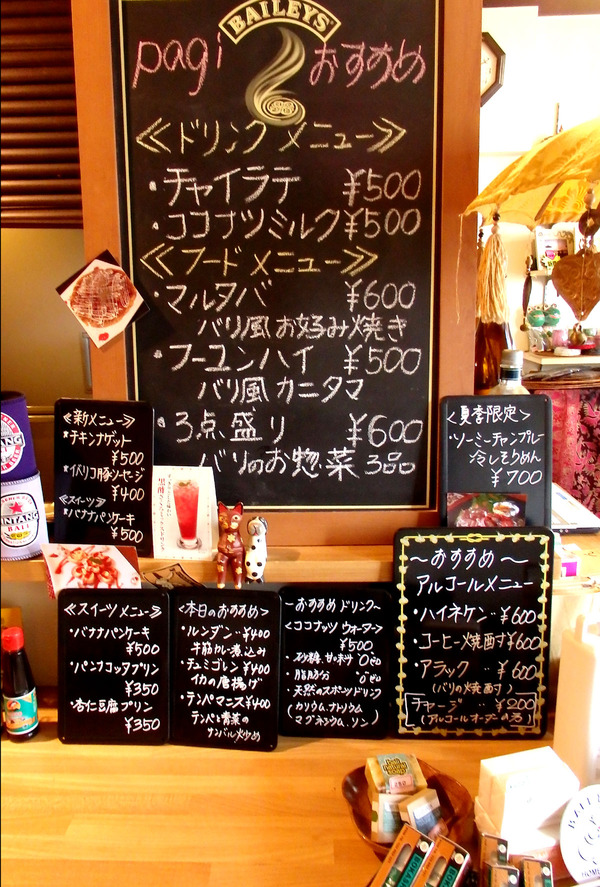 BAILEYS
pagi おすすめ
≪ドリンク メニュー≫
・チャイラテ ¥500
・ココナツミルク ¥500
≪フードメニュー≫
・マルタバ ¥600
バリ風お好み焼き
・フーユンハイ ¥500
バリ風カニタマ
・3点盛り ¥600
バリのお惣菜3品
≪新メニュー≫
*チキンナゲット
¥500
*イベリコ豚ソーセージ
¥400
≪スイーツ≫
*バナナパンケーキ
¥500
<夏季限定>
・ソーミーチャンプルー
冷しそうめん
¥700
≪スイーツメニュー≫
・バナナパンケーキ
¥500
・パンナコッタプリン
¥350
・杏仁豆腐プリン
¥350
<本日のおすすめ>
・ルンダン ¥400
牛筋カレー煮込み
・チュミゴレン ¥400
イカの唐揚げ
・テンペマニス ¥400
テンペと青菜の
サンバル炒め
~おすすめドリンク~
<ココナッツウォーター>
¥500
・砂糖、甘味料 0%
・脂肪分 0%
・天然のスポーツドリンク
(カリウム、ナトリウム
マグネシウム、リン)
~おすすめ~
アルコールメニュー
・ハイネケン ¥600
・コーヒー焼酎 ¥600
・アラック ¥600
(バリの焼酎)
チャージ ¥200
(アルコールオーダーの方)
BINTANG
BALI